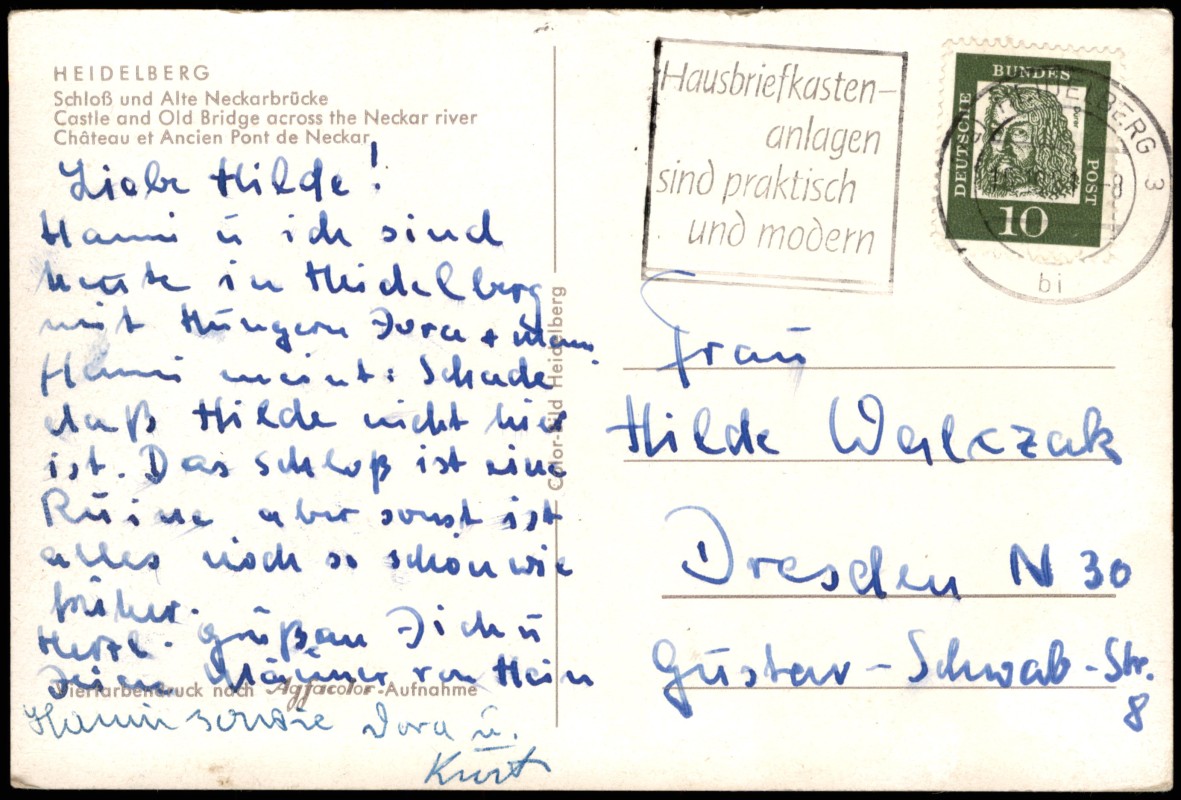 HEIDELBERG
Schloß und Alte Neckarbrücke
Castle and Old Bridge across the Neckar river
Château et Ancien Pont de Neckar
Liebe Hilde!
Hanni u ich sind
heute in Heidelberg
mit Hüngern Dora + Mann.
Hanni meint: Schade
daß Hilde nicht hier
ist. Das Schloß ist eine
Ruine aber sonst ist
alles noch so schön wie
früher.
Herzl. Grüßen Dich u
Deine Männer von Hein
Hanni sowie Dora u.
Kurt
Vierfarbendruck nach Agfacolor-Aufnahme
Color-Bild Heidelberg
Hausbriefkasten-
anlagen
sind praktisch
und modern
DEUTSCHE
BUNDES
POST
Dürer
10
HEIDELBERG 3
-8
bi
Frau
Hilde Walczak
Dresden N 30
Gustav-Schwab-Str.
8